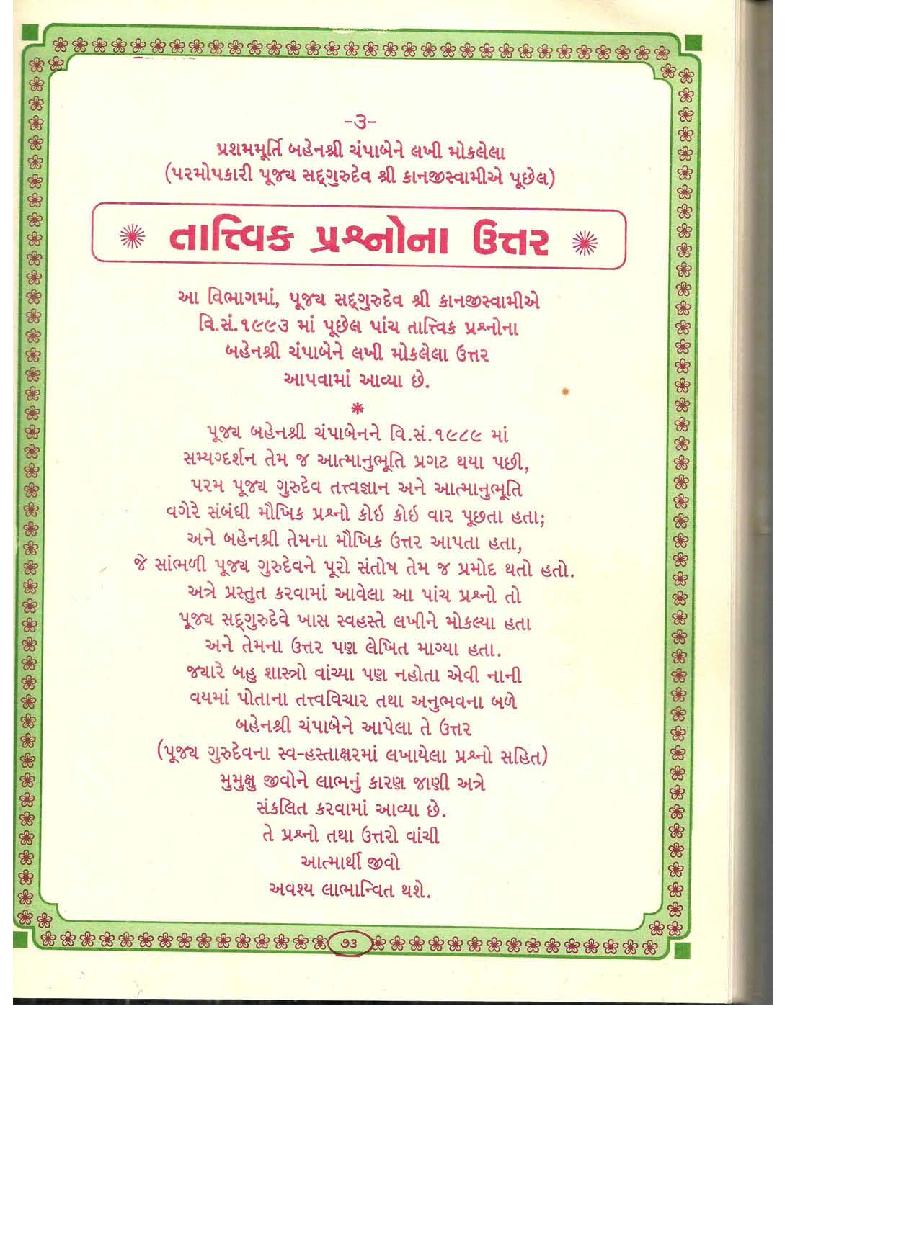 -૩-
પ્રશમમૂર્તિ બહેનશ્રી ચંપાબેને લખી મોકલેલા
(પરમોપકારી પૂજ્ય સદ્ગુરુદેવ શ્રી કાનજીસ્વામીએ પૂછેલ)
તાત્ત્વિક પ્રશ્નોના ઉત્તર
આ વિભાગમાં, પૂજ્ય સદ્ગુરુદેવ શ્રી કાનજીસ્વામીએ
વિ.સં.૧૯૯૩ માં પૂછેલ પાંચ તાત્ત્વિક પ્રશ્નોના
બહેનશ્રી ચંપાબેને લખી મોકલેલા ઉત્તર
આપવામાં આવ્યા છે.
*
પૂજ્ય બહેનશ્રી ચંપાબેનને વિ.સં.૧૯૮૯ માં
સમ્યગ્દર્શન તેમ જ આત્માનુભૂતિ પ્રગટ થયા પછી,
પરમ પૂજ્ય ગુરુદેવ તત્ત્વજ્ઞાન અને આત્માનુભૂતિ
વગેરે સંબંધી મૌખિક પ્રશ્નો કોઇ કોઇ વાર પૂછતા હતા;
અને બહેનશ્રી તેમના મૌખિક ઉત્તર આપતા હતા,
જે સાંભળી પૂજ્ય ગુરુદેવને પૂરો સંતોષ તેમ જ પ્રમોદ થતો હતો.
અત્રે પ્રસ્તુત કરવામાં આવેલા આ પાંચ પ્રશ્નો તો
પૂજ્ય સદ્ગુરુદેવે ખાસ સ્વહસ્તે લખીને મોકલ્યા હતા
અને તેમના ઉત્તર પણ લેખિત માગ્યા હતા.
જ્યારે બહુ શાસ્ત્રો વાંચ્યા પણ નહોતા એવી નાની
વયમાં પોતાના તત્ત્વવિચાર તથા અનુભવના બળે
બહેનશ્રી ચંપાબેને આપેલા તે ઉત્તર
(પૂજ્ય ગુરુદેવના સ્વ-હસ્તાક્ષરમાં લખાયેલા પ્રશ્નો સહિત)
મુમુક્ષુ જીવોને લાભનું કારણ જાણી અત્રે
સંકલિત કરવામાં આવ્યા છે.
તે પ્રશ્નો તથા ઉત્તરો વાંચી
આત્માર્થી જીવો
અવશ્ય લાભાન્વિત થશે.
૭૩